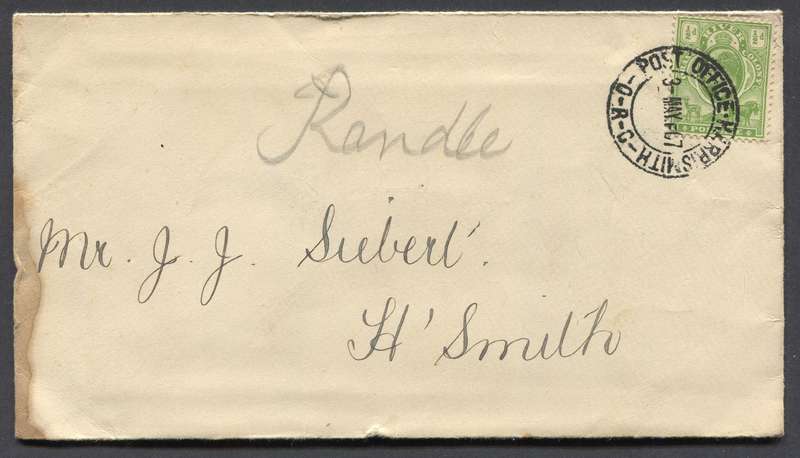 POST OFFICE·HARRISMITH-O-R-C-
3-MAY.FO7
½d ½d
Randle
Mr. J. J. Siebert.
H'Smith